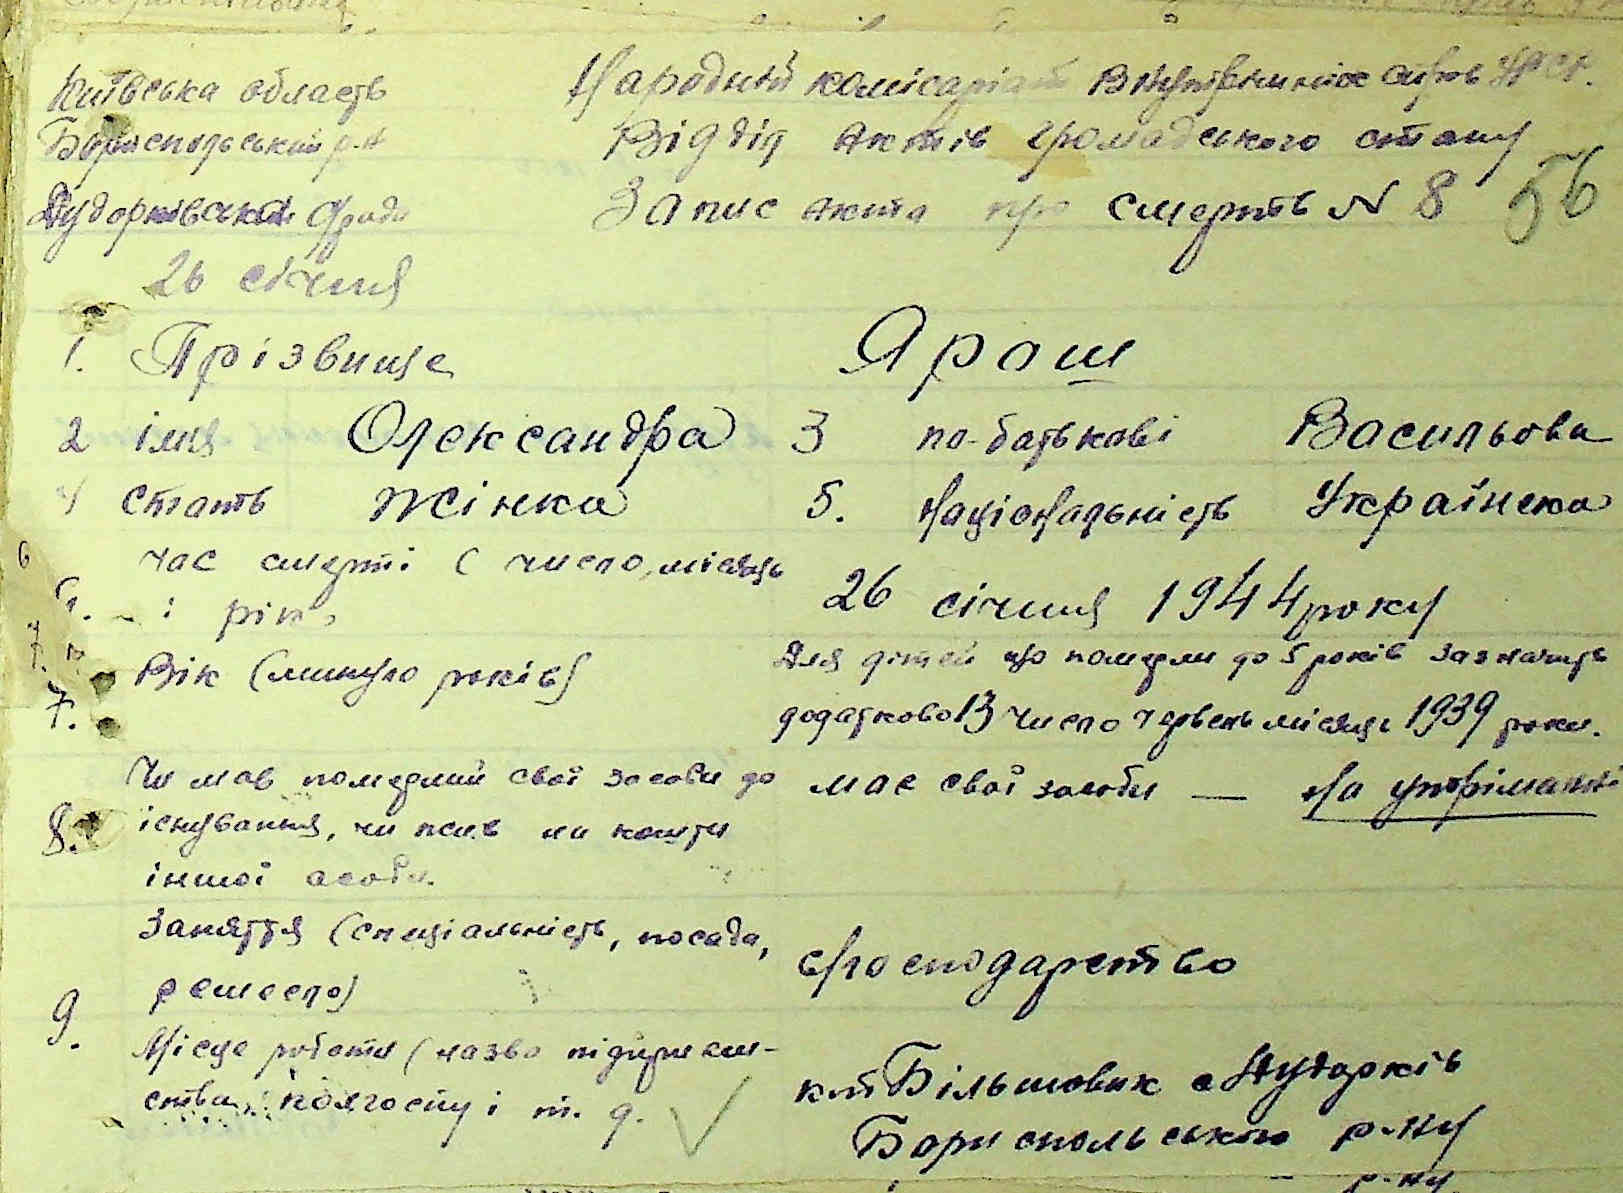 Київська область
Народній комісаріат Внутрішніх справ УРСР.
Бориспольський р-н
Відділ Актів громадського стану
Дударківська с/рада
Запис акта про смерть N 8 56
26 січня
1. Прізвище Ярош
2 імя Олександра 3 по-батькові Васильовна
4 стать Жінка 5. Національність Українка
6 час смерті (число, місяць
6. і рік, 26 січня 1944 року
7. Вік (минуло років) Для дітей що померли до 5 років зазначить
7. додатково 13 число червень місяць 1939 року.
Чи мав померлий свої засоби до має свої засоби — на утріманні
8. існування, чи жив на кошти
іншої особи.
Заняття (спеціальність, посада, с/господарство
ремесло)
9. Місце роботи (назва підприєм-
ства, колгоспу і т. д. к-п Більшовик с Дударків
Бориспольського р-ну
р-ну